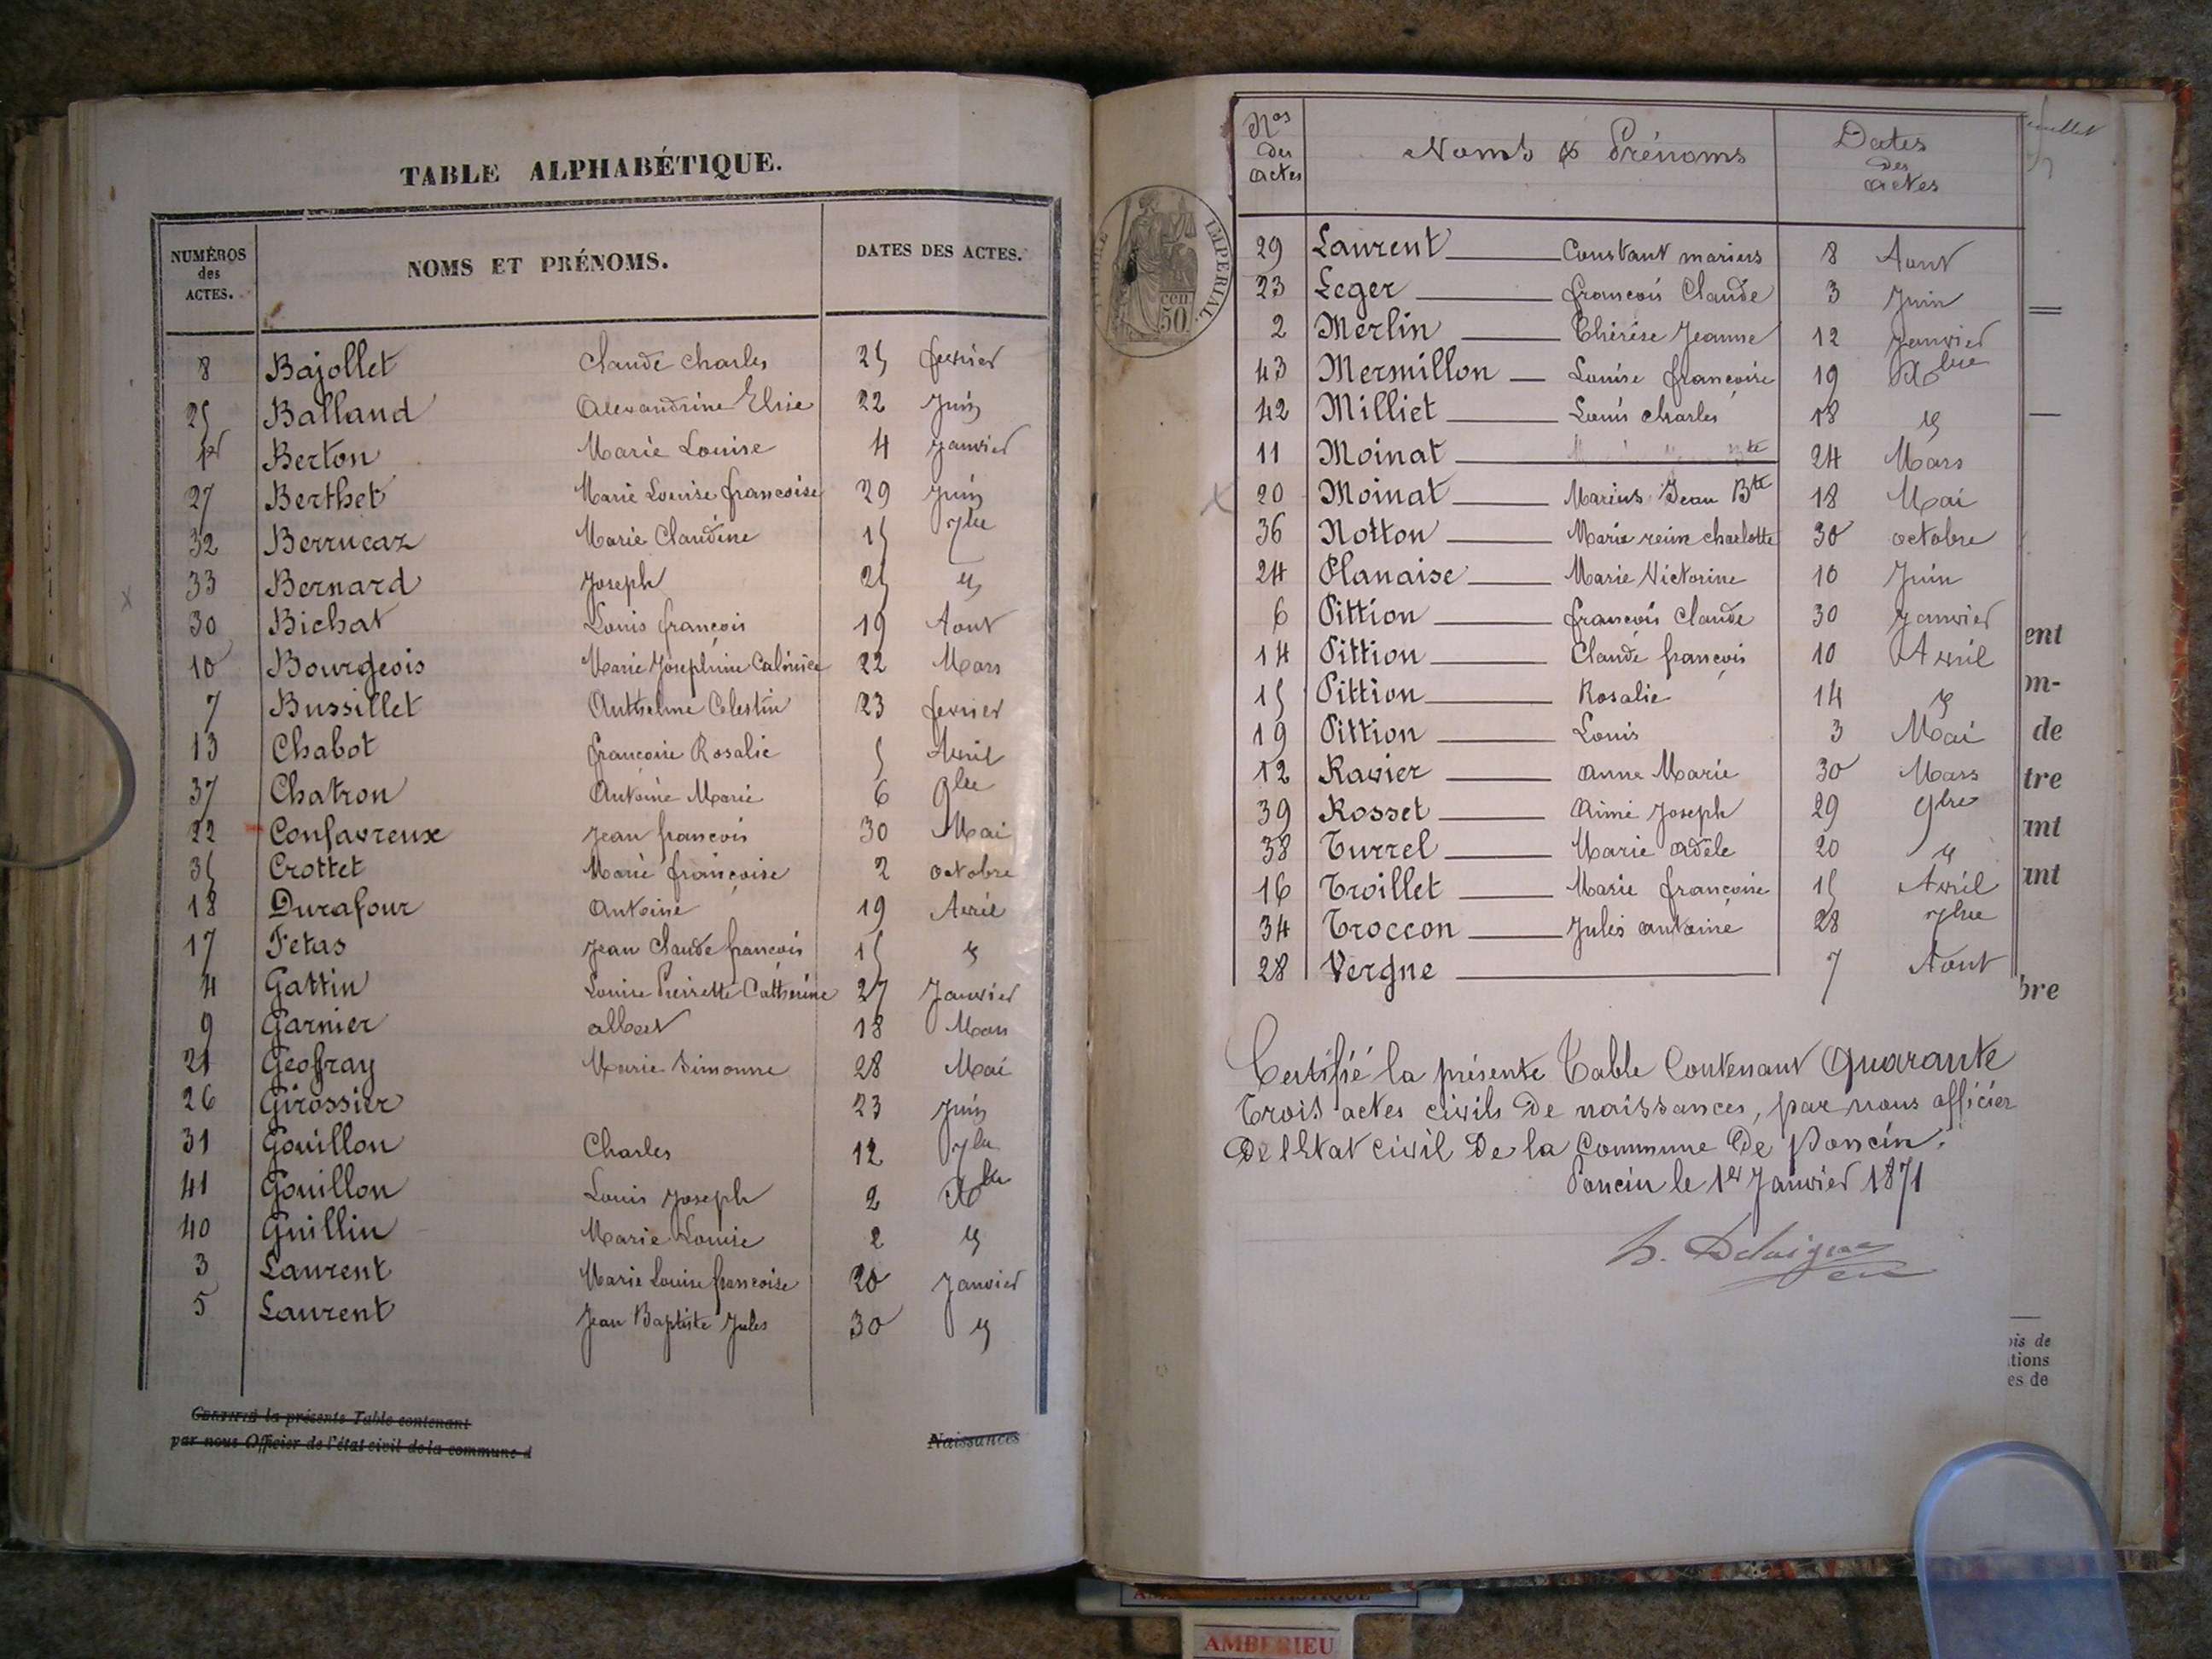 TABLE ALPHABÉTIQUE.
NUMÉROS des ACTES. NOMS ET PRÉNOMS. DATES DES ACTES.
8 Bajollet Claude Charles 25 fevrier
25 Balland Alexandrine Elise 22 Juin
1er Berton Marie Louise 4 Janvier
27 Berthet Marie Louise francoise 29 Juin
32 Berrucaz Marie Claudine 15 7bre
33 Bernard Joseph 25
30 Bichat Louis francois 19 Aout
10 Bourgeois Marie Josephine 22 Mars
7 Bussillet Anthelme Celestin 23 fevrier
13 Chabot francoise Rosalie 5 Avril
37 Chatron Antoine Marie 6 9bre
22 Confavreux Jean francois 30 Mai
35 Crottet Marie françoise 2 octobre
18 Durafour Antoine 19 Avril
17 Fetas Jean Claude francois 15
4 Gattin Louise Pierrette Catherine 27 Janvier
9 Garnier albert 18 Mars
21 Geofray Marie Simonne 28 Mai
26 Girossier 23 Juin
31 Gouillon Charles 12 7bre
41 Gouillon Louis Joseph 2 Xbre
40 Guillin Marie Louise 2
3 Laurent Marie Louise francoise 20 Janvier
5 Laurent Jean Baptiste Jules 30
CERTIFIÉ la présente Table contenant
par nous Officier de l'état civil de la commune d
Naissances
TIMBRE IMPERIAL.
50 cen
Nos des actes Noms & Prénoms Dates des actes
29 Laurent Constant marius 8 Aout
23 Leger francois Claude 3 Juin
2 Merlin Thérèse Jeanne 12 Janvier
43 Mermillon Louise francoise 19 Xbre
42 Milliet Louis Charles 18
11 Moinat 24 Mars
20 Moinat Marius Jean Bte 18 Mai
36 Notton Marie reine charlotte 30 octobre
24 Planaise Marie Victorine 10 Juin
6 Pittion francois Claude 30 Janvier
14 Pittion Claude françois 10 Avril
15 Pittion Rosalie 14
19 Pittion Louis 3 Mai
12 Ravier Anne Marie 30 Mars
39 Rosset Aimé Joseph 29 9bre
38 Turrel Marie adèle 20
16 Troillet Marie françoise 15 Avril
34 Troccon Jules antoine 28 7bre
28 Vergne 7 Aout
Certifié la présente Table Contenant Quarante
Trois actes civils de naissances, par nous officier
de l'Etat civil de la Commune de Poncin.
Poncin le 1er Janvier 1871
ent
m-
de
tre
ant
ant
bre
ois de
tions
es de
AMBERIEU